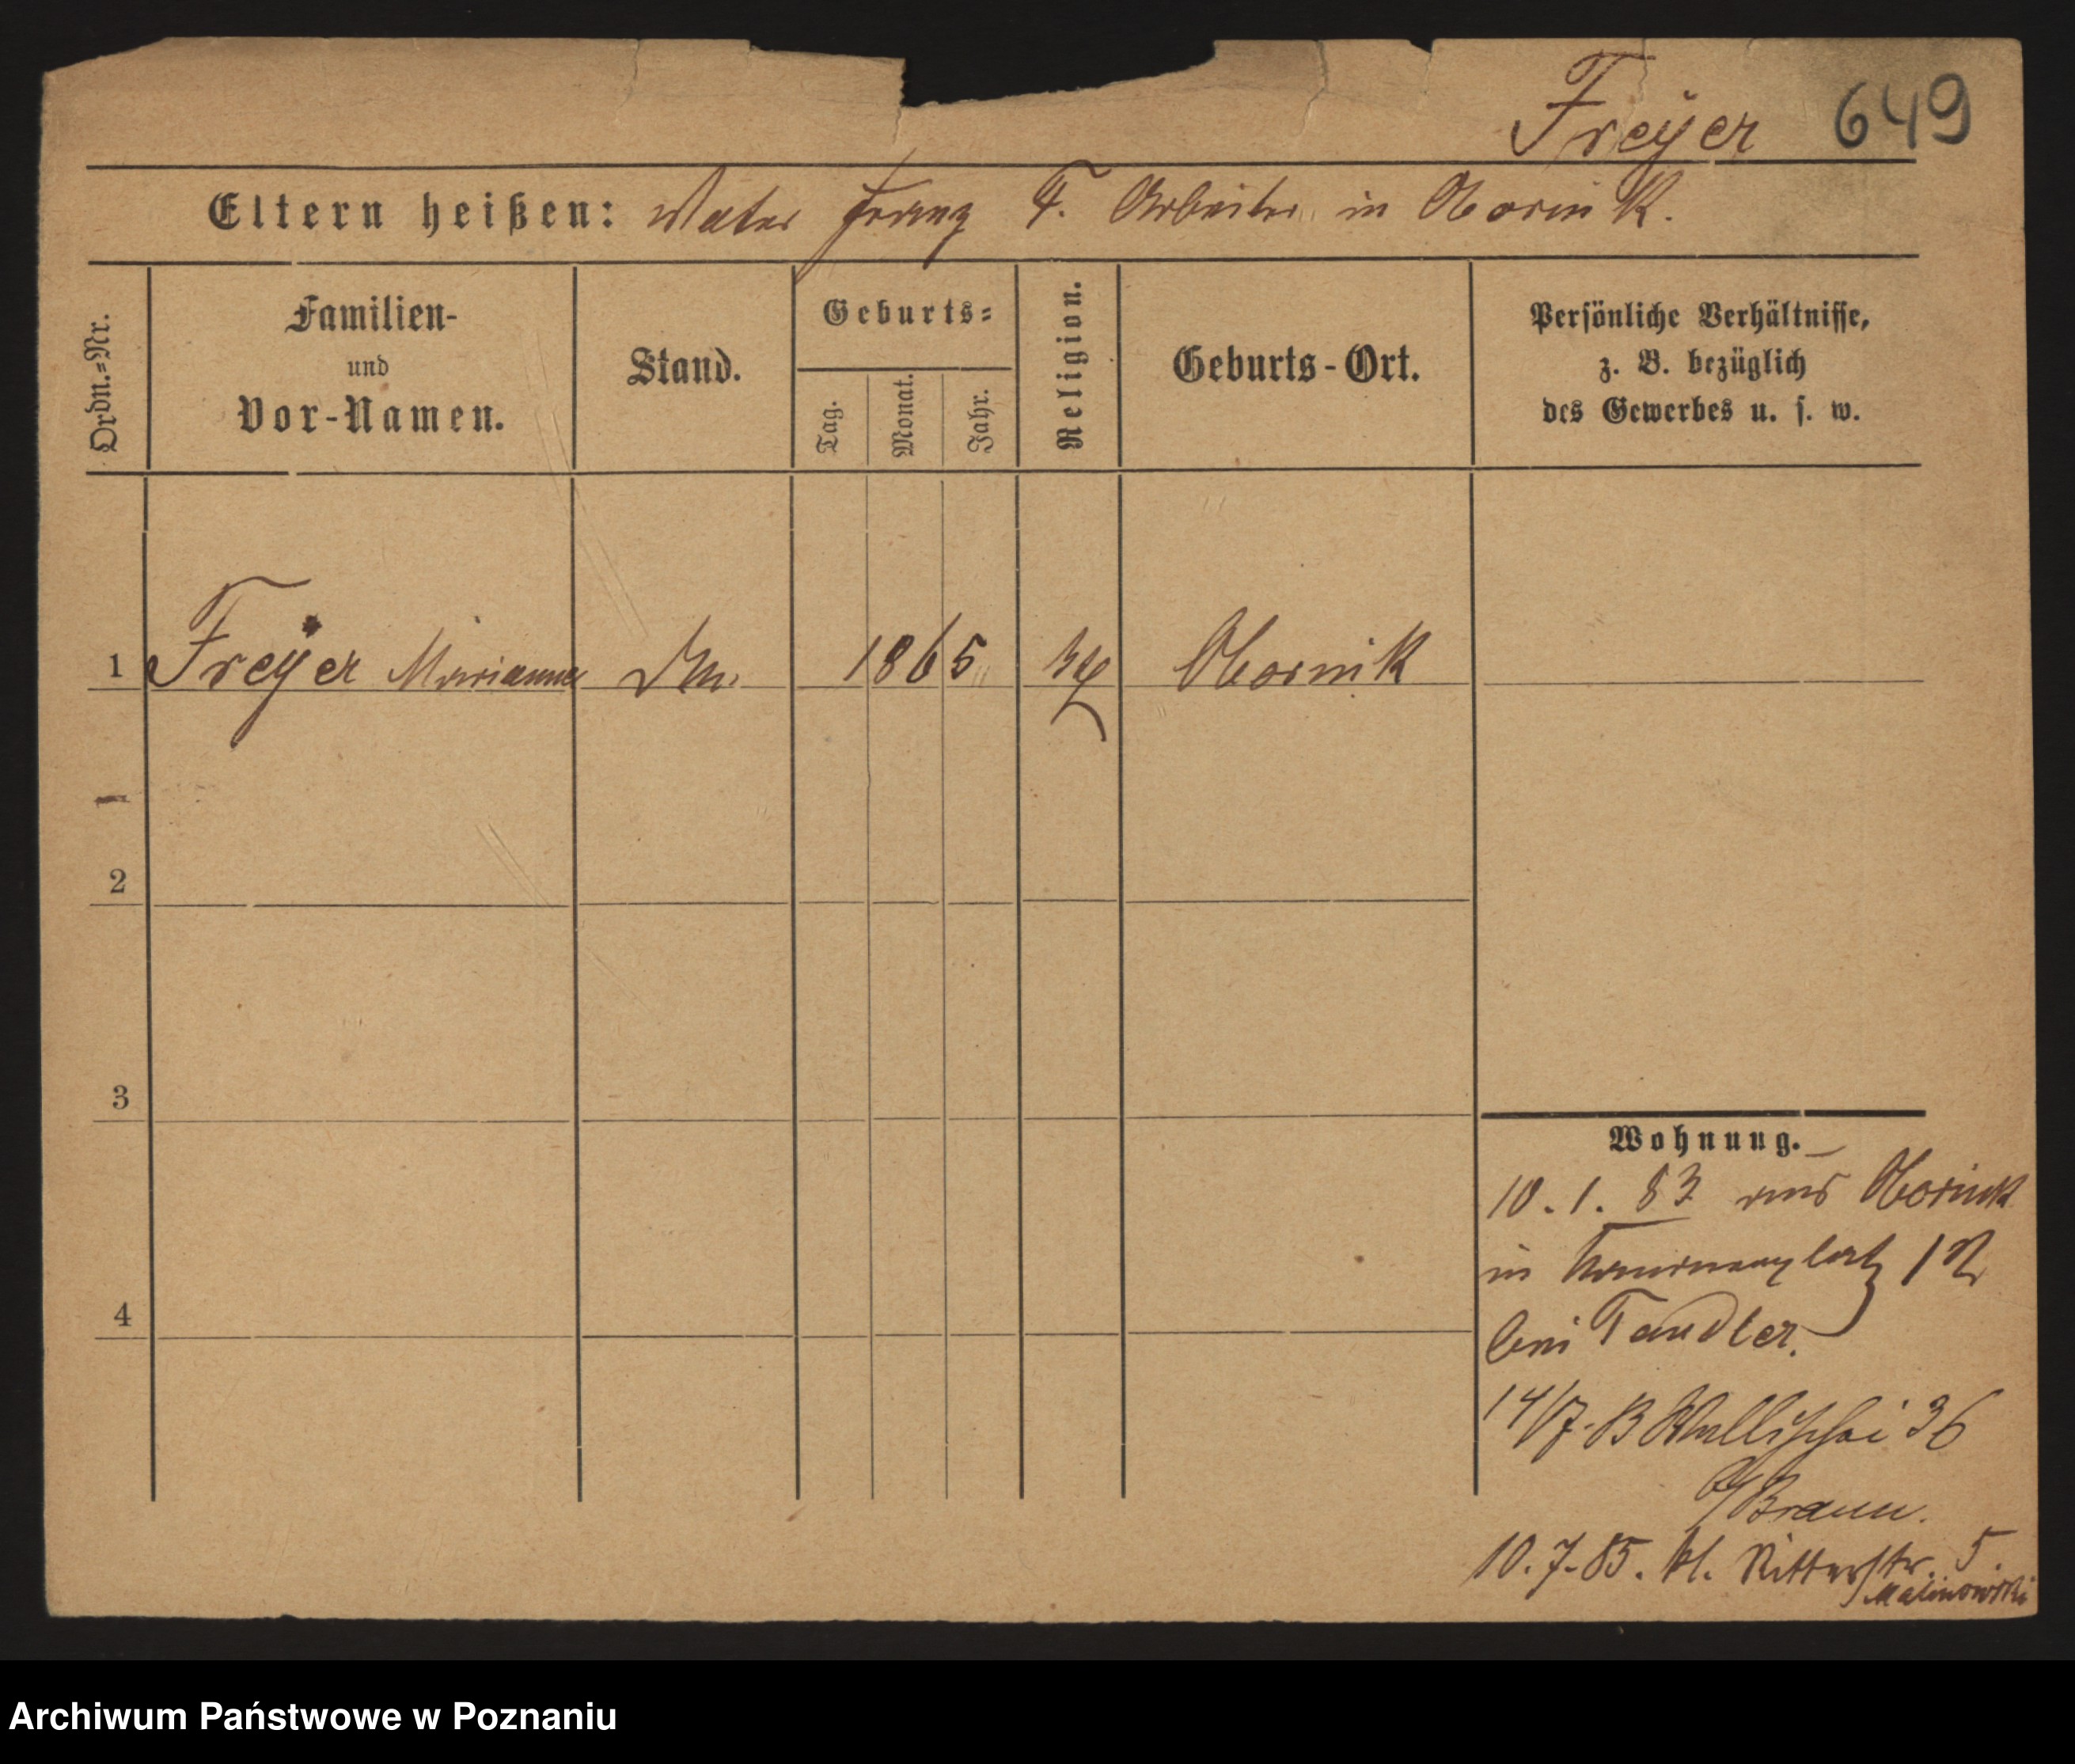 Freyer 649
Eltern heißen: Vater Franz F. Arbeiter in Obornik.
Ordn.=Nr.
Familien-
und
Vor-Namen.
Stand.
Geburts=
Tag.
Monat.
Jahr.
Religion.
Geburts-Ort.
Persönliche Verhältnisse,
z. B. bezüglich
des Gewerbes u. s. w.
1 Freyer Marianna 1865 Obornik
2
3
4
Wohnung.
10. 1. 83 aus Obornik
in
bei Tandler.
14/7. 83 Wallischei 36
b/Braun.
10. 7. 85. kl. Ritterstr. 5.
Malinowski
Archiwum Państwowe w Poznaniu